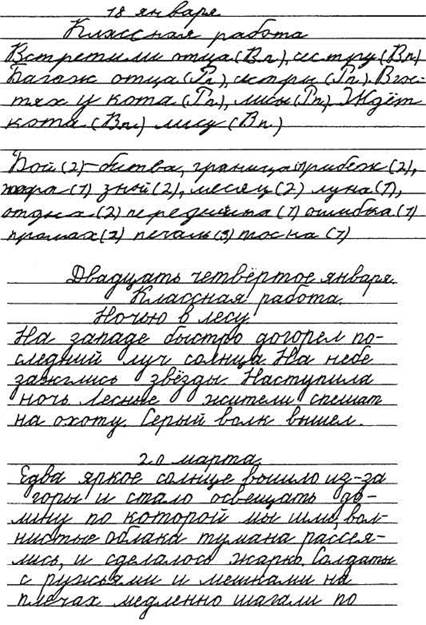 18 января
Классная работа
Встретили отца (Вп), сестру (Вп)
Багаж отца (Рп), сестры (Рп). В гос-
тях у кота (Рп), лисы (Рп). Ждёт
кота (Вп) лису (Вп)
Бой (2)-битва, граница рубеж (2),
жара (1) зной (2), месяц (2) луна (1),
отдха (2) передышка (1) ошибка (1)
промах (2) печаль (3) тоска (1)
Двадцать четвёртое января.
Классная работа.
Ночью в лесу
На западе быстро догорел по-
следний луч солнца На небе
зажглись звёзды Наступила
ночь Лесные жители спешат
на охоту. Серый волк вышел.
20 марта
Едва яркое солнце вошло из-за
горы и стало освещать до-
лину по которой мы шли, вол-
нистые облака тумана рассея-
лись, и сделалось жарко. Солдаты
с ружьями и мешками на
плечах медленно шагали по